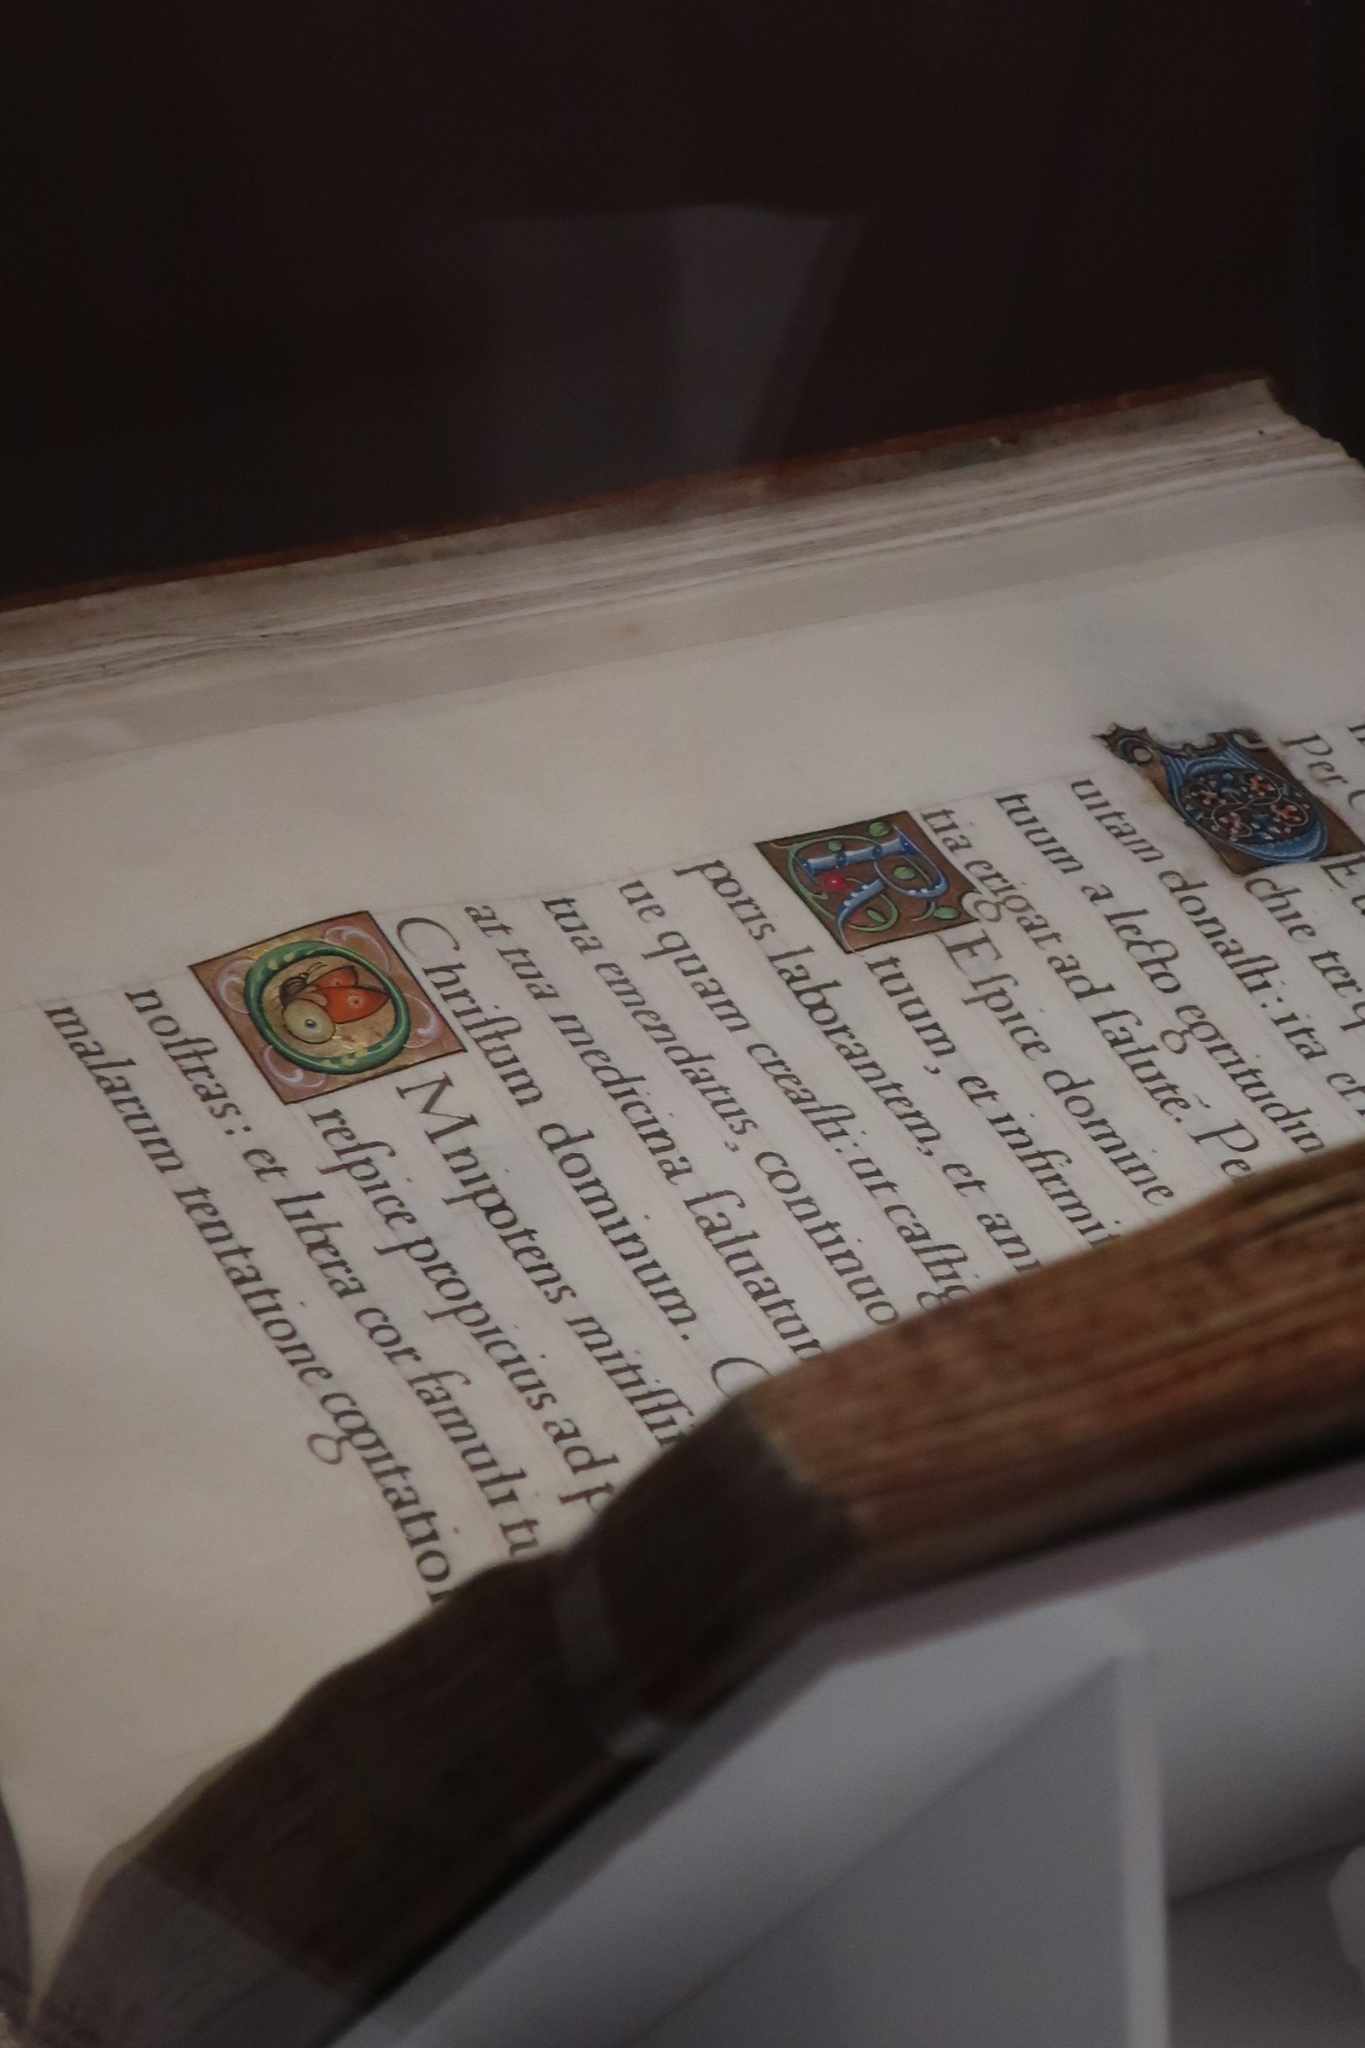 Per
chie ter
uitam donaſti: ita et
tuum a lecto egritudin
tia erigat ad ſalutē. Pe
REſpice domine
tuum, et infirmi
poris laborantem, et ani
ue quam creaſti: ut caſtig
tua emendatus, continuo
at tua medicina ſaluatum
Chriſtum dominum.
OMnipotens mitiſſi
reſpice propicius ad p
noſtras: et libera cor famuli tu
malarum tentatione cogitation